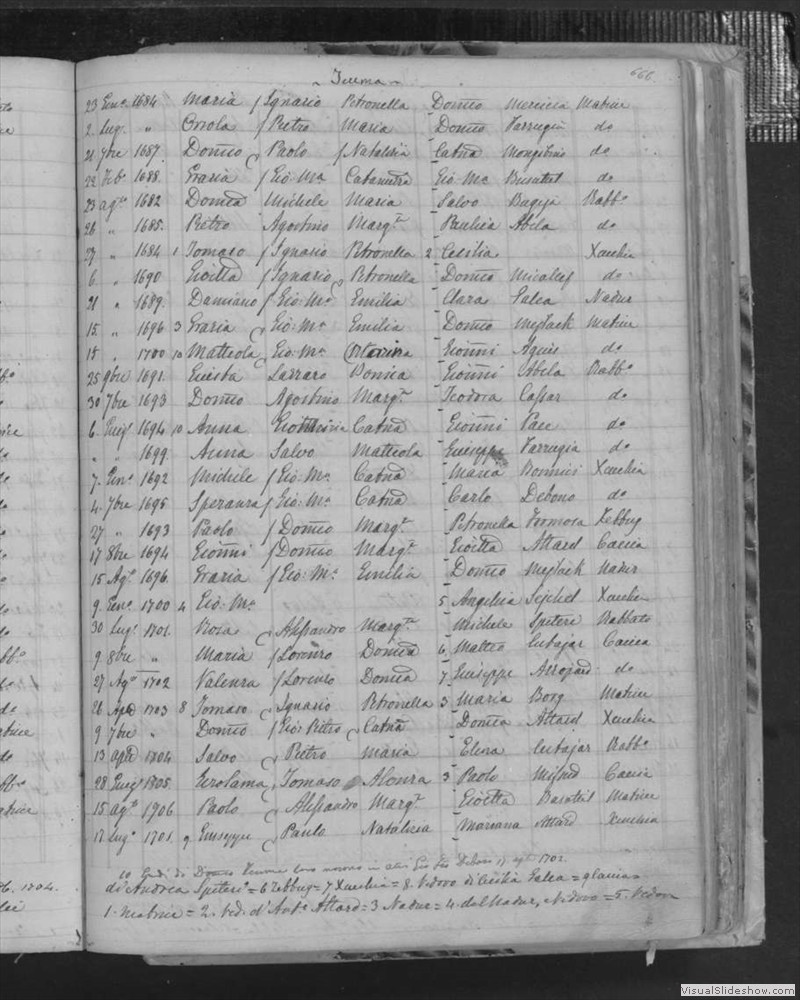 ~ Teuma ~ 666
23 Enro. 1684 Maria f Ignazio Petronella Domco Mercieca Matrice
2 Lug. " Oriola f Pietro Maria Domco Farrugia do
21 7bre 1687. Domco Paolo f Natalizia Catna Mongibino do
22 Feb. 1688. Grazia f Gio: Ma. Catarinella Gio: Ma. Busuttil do
23 agto 1682 Domca Michele Maria Salvo Bugeja Rabbo
26 " 1685. Pietro Agostino Margta Paulica Abela do
27 " 1684 1 Tomaso f Ignazio Petronella 2 Cecilia Xeuchia
6 " 1690 Gioitta f Ignazio Petronella Domco Micallef do
21 " 1689. Damiano f Gio: Ma. Emilia Clara Galea Nadur
15. " 1696 3 Grazia Gio: Ma. Emilia Domco Mejlack Matrice
15 " 1700 10 Matteola Gio: Ma. Gioanni Aquis do
25 9bre 1691. Lazzaro Bonica Gioanni Abela Rabbo
30 7bre 1693 Domco Agostino Margta Teodora Cassar do
6 Giug. 1694 10 Anna Catna Gioanni Pace do
" " 1699 Anna Salvo Matteola Giuseppe Farrugia do
7. Genro. 1692 Michele f Gio: Ma. Catna Maria Bonnici Xeuchia
4. 7bre 1695 Speranza f Gio: Ma. Catna Carlo Debono do
27 " 1693 Paolo f Domco Margta Petronella Formosa Zebbug
17 8bre 1694 Gioanni f Domco Margta Gioitta Attard Caccia
15 Agto 1696. Grazia f Gio: Ma. Emilia Domco Mejlack Nadur
9. Genro. 1700 4 Gio: Ma. 5 Angelica Sejchel Xeuchia
30 Lugo. 1701. Rosa Alessandro Margta Michele Spiteri Rabbato
9. 8bre " Maria f Lorenzo Domca 6 Matteo Cutajar Caccia
27 Ago 1702 Valenza f Lorenzo Domca 7 Giuseppe do
26 Apre 1703 8 Tomaso Ignazio Petronella 3 Maria Borg Matrice
9 7bre " Domco f Gio: Pietro Catna Domca Attard Xeuchia
13 apre 1704 Salvo Pietro Maria Elena Cutajar Rabbo
28 Giugo 1705. Gerolama Tomaso Alonza 3 Paolo Mifsud Caccia
15 agto 1706 Paolo Alessandro Margta Gioitta Busuttil Matrice
12 Lugo 1701. 9 Giuseppe Paulo Natalizia Mariana Attard Xeuchia
10 di Domco Teuma 17 1702.
di Andrea Spiteri = 6 Zebbug = 7 Xeuchia = 8. Vedovo di Cecilia Galea =
1. Matrice = 2. Ved. d'Anto Attard = 3 Nadur = 4. del Nadur, Vedovo = 5. Vedova